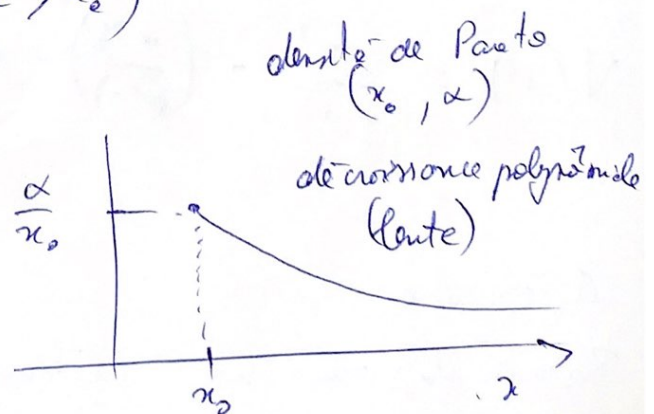 densité de Pareto
(x₀, α)
décroissance polynômiale
(lente)
α
x₀
x₀
x